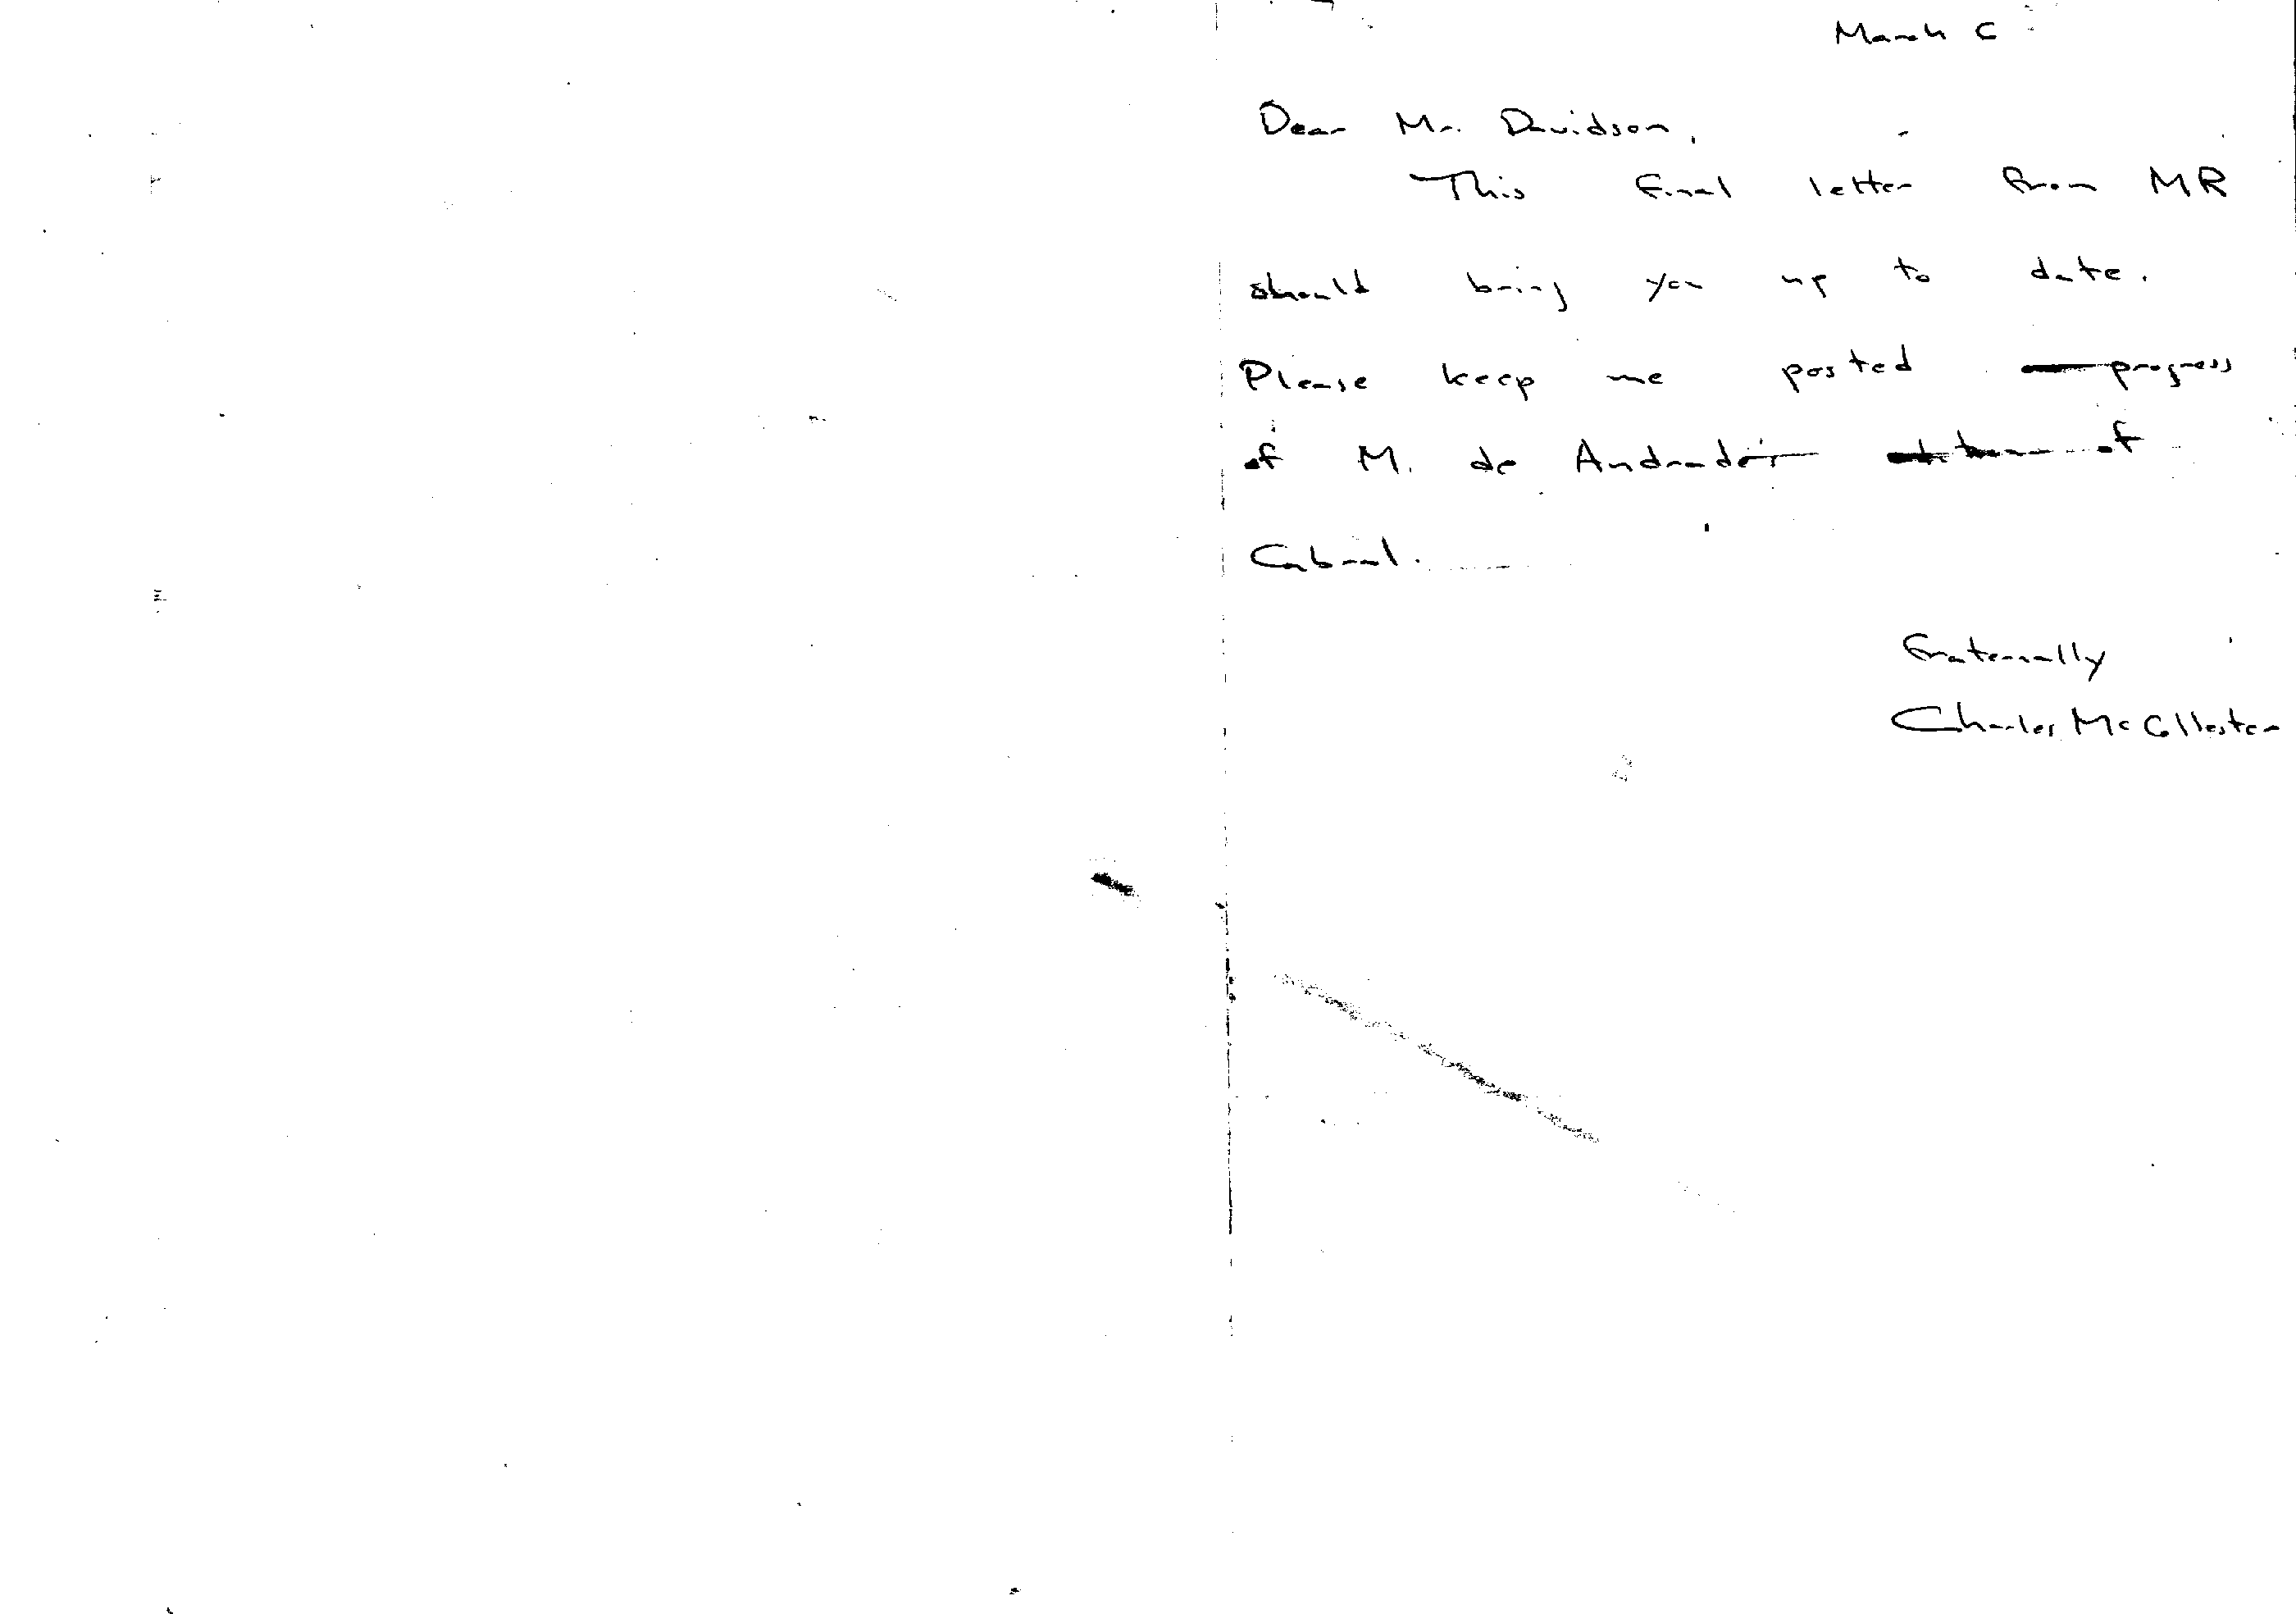 March 6
Dear Mr. Davidson,
This final letter from MR
should bring you up to date.
Please keep me posted progress
of M. de Andrade's of
Cabral.
Fraternally
Charles McCollester